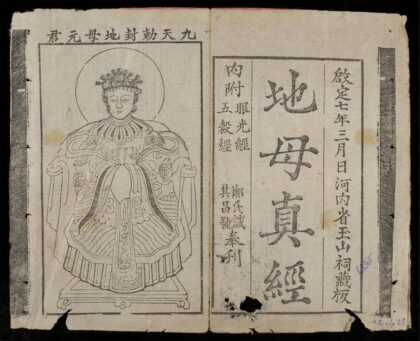 啟定七年三月日河内省玉山祠藏板
地母真經
内附
眼光經
五穀經
鄭氏
其昌號
奉刊
九天勅封地母元君